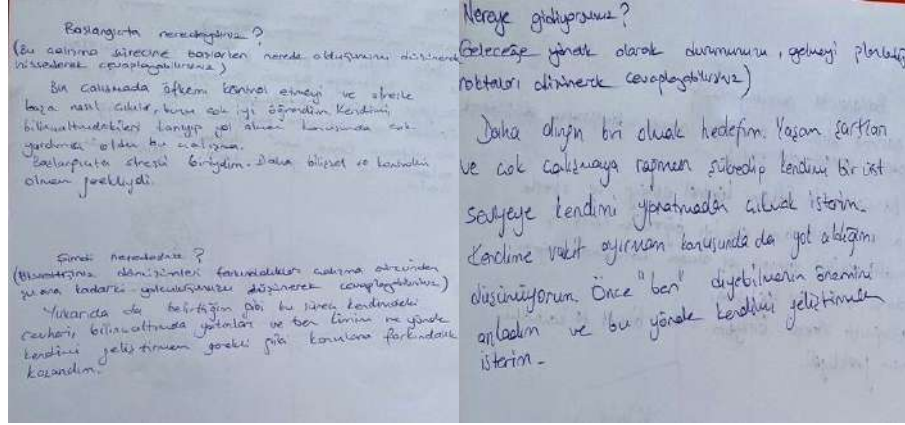 Başlangıçta neredeydiniz?
(Bu çalışma sürecine başlarken nerede olduğunuzu düşünerek
hissederek cevaplayabilirsiniz)
Bu çalışmada öfkemi kontrol etmeyi ve stresle
başa nasıl çıkılır, bunu çok iyi öğrendim. Kendimi,
bilinçaltımdakileri tanıyıp yol almam konusunda çok
yardımcı oldu bu çalışma.
Başlangıçta stresli biriydim. Daha bilişsel ve kontrollü
olmam gerekliydi.
Şimdi neredesiniz?
(Bu dönüşümleri farkındalıkları çalışma sürecinden
şu ana kadarki yolculuğunuzu düşünerek cevaplayabilirsiniz)
Yukarıda da belirttiğim gibi bu süreç kendimdeki
cevheri, bilinçaltımda yatanları ve ben kimim ne yönde
kendimi geliştirmem gerekli gibi konulara farkındalık
kazandım.
Nereye gidiyorsunuz?
(Geleceğe yönelik olarak durumunuzu, gelmeyi planladığınız
noktaları düşünerek cevaplayabilirsiniz)
Daha dingin biri olmak hedefim. Yaşam şartları
ve çok çalışmaya rağmen şükredip kendimi bir üst
seviyeye kendimi yıpratmadan çıkmak isterim.
Kendime vakit ayırmam konusunda da yol aldığımı
düşünüyorum. Önce "ben" diyebilmenin önemini
anladım ve bu yönde kendimi geliştirmek
isterim.